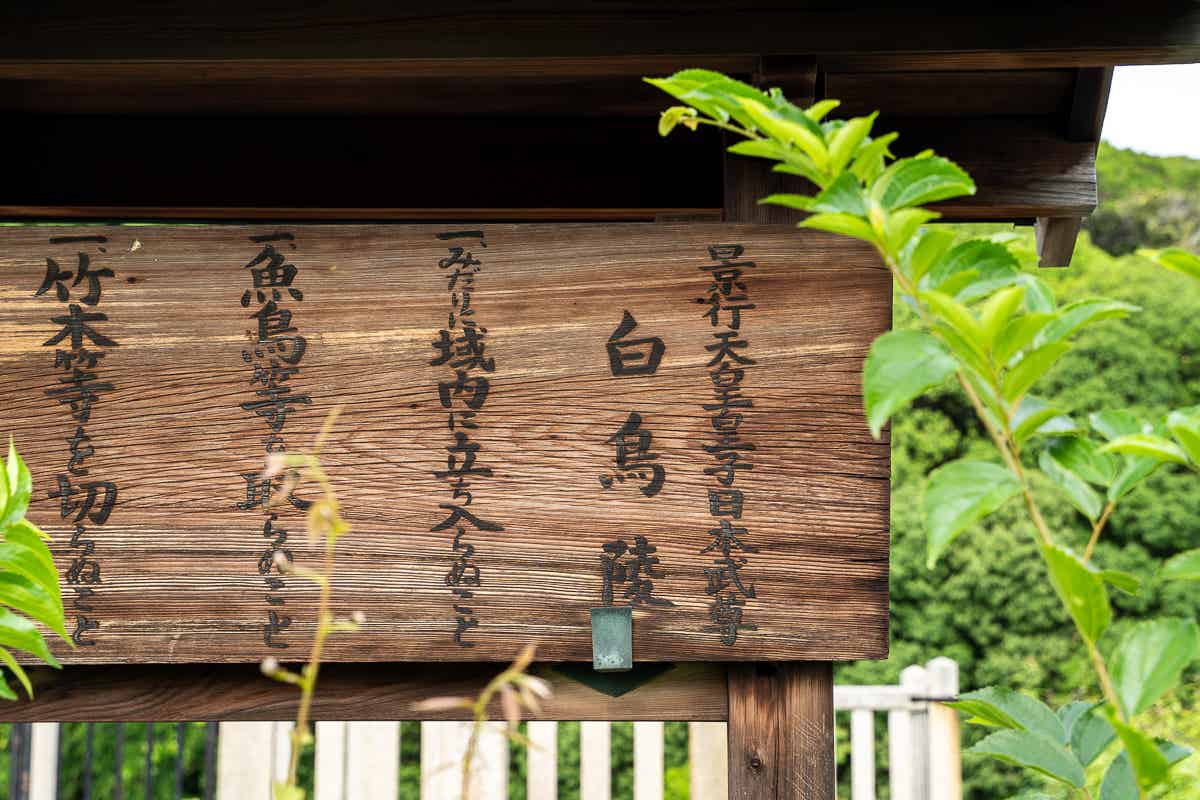 景行天皇皇子日本武尊
白鳥陵
一、みだりに域内に立ち入らぬこと
一、魚鳥等を取らぬこと
一、竹木等を切らぬこと